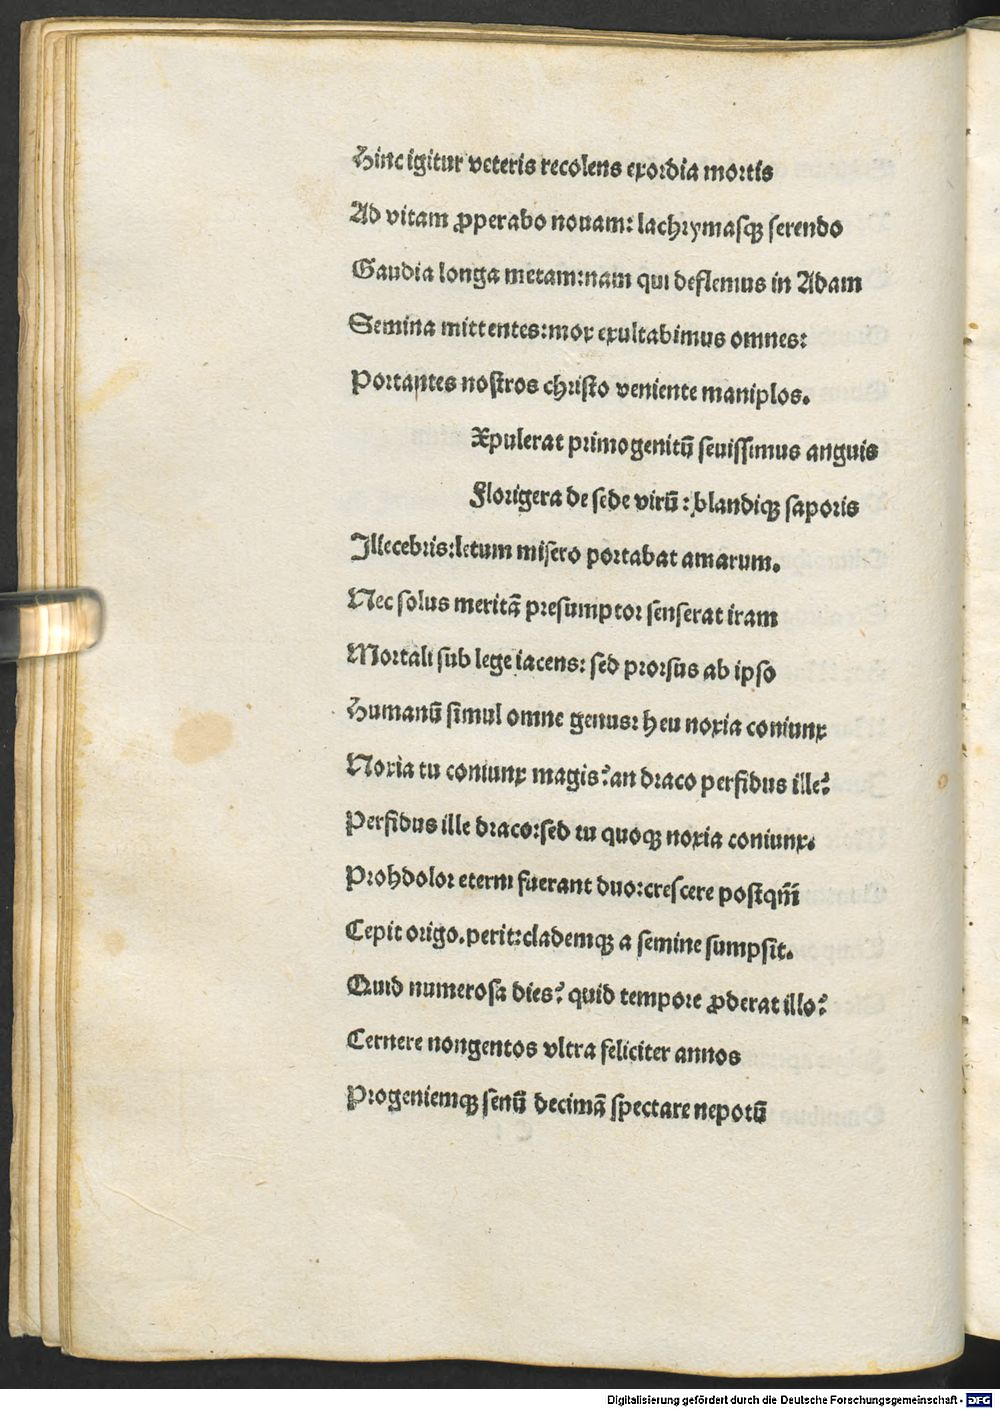 Hinc igitur veteris recolens exordia mortis
Ad vitam ꝓperabo nouam: lachrymasqꝫ serendo
Gaudia longa metam:nam qui deflemus in Adam
Semina mittentes:mox exultabimus omnes:
Portantes nostros christo veniente maniplos.
Xpulerat primogenitū seuissimus anguis
Florigera de sede virū: blandiqꝫ saporis
Illecebris:letum misero portabat amarum.
Nec solus meritā presumptor senserat iram
Mortali sub lege iacens: sed prorsus ab ipso
Humanū simul omne genus: heu noxia coniunx
Noxia tu coniunx magis? an draco perfidus ille?
Perfidus ille draco:sed tu quoqꝫ noxia coniunx.
Prohdolor eterni fuerant duo:crescere postqm̄
Cepit origo.perit:clademqꝫ a semine sumpsit.
Quid numerosa dies? quid tempore ꝓderat illo?
Cernere nongentos vltra feliciter annos
Progeniemqꝫ senū decimā spectare nepotū
Digitalisierung gefördert durch die Deutsche Forschungsgemeinschaft - DFG